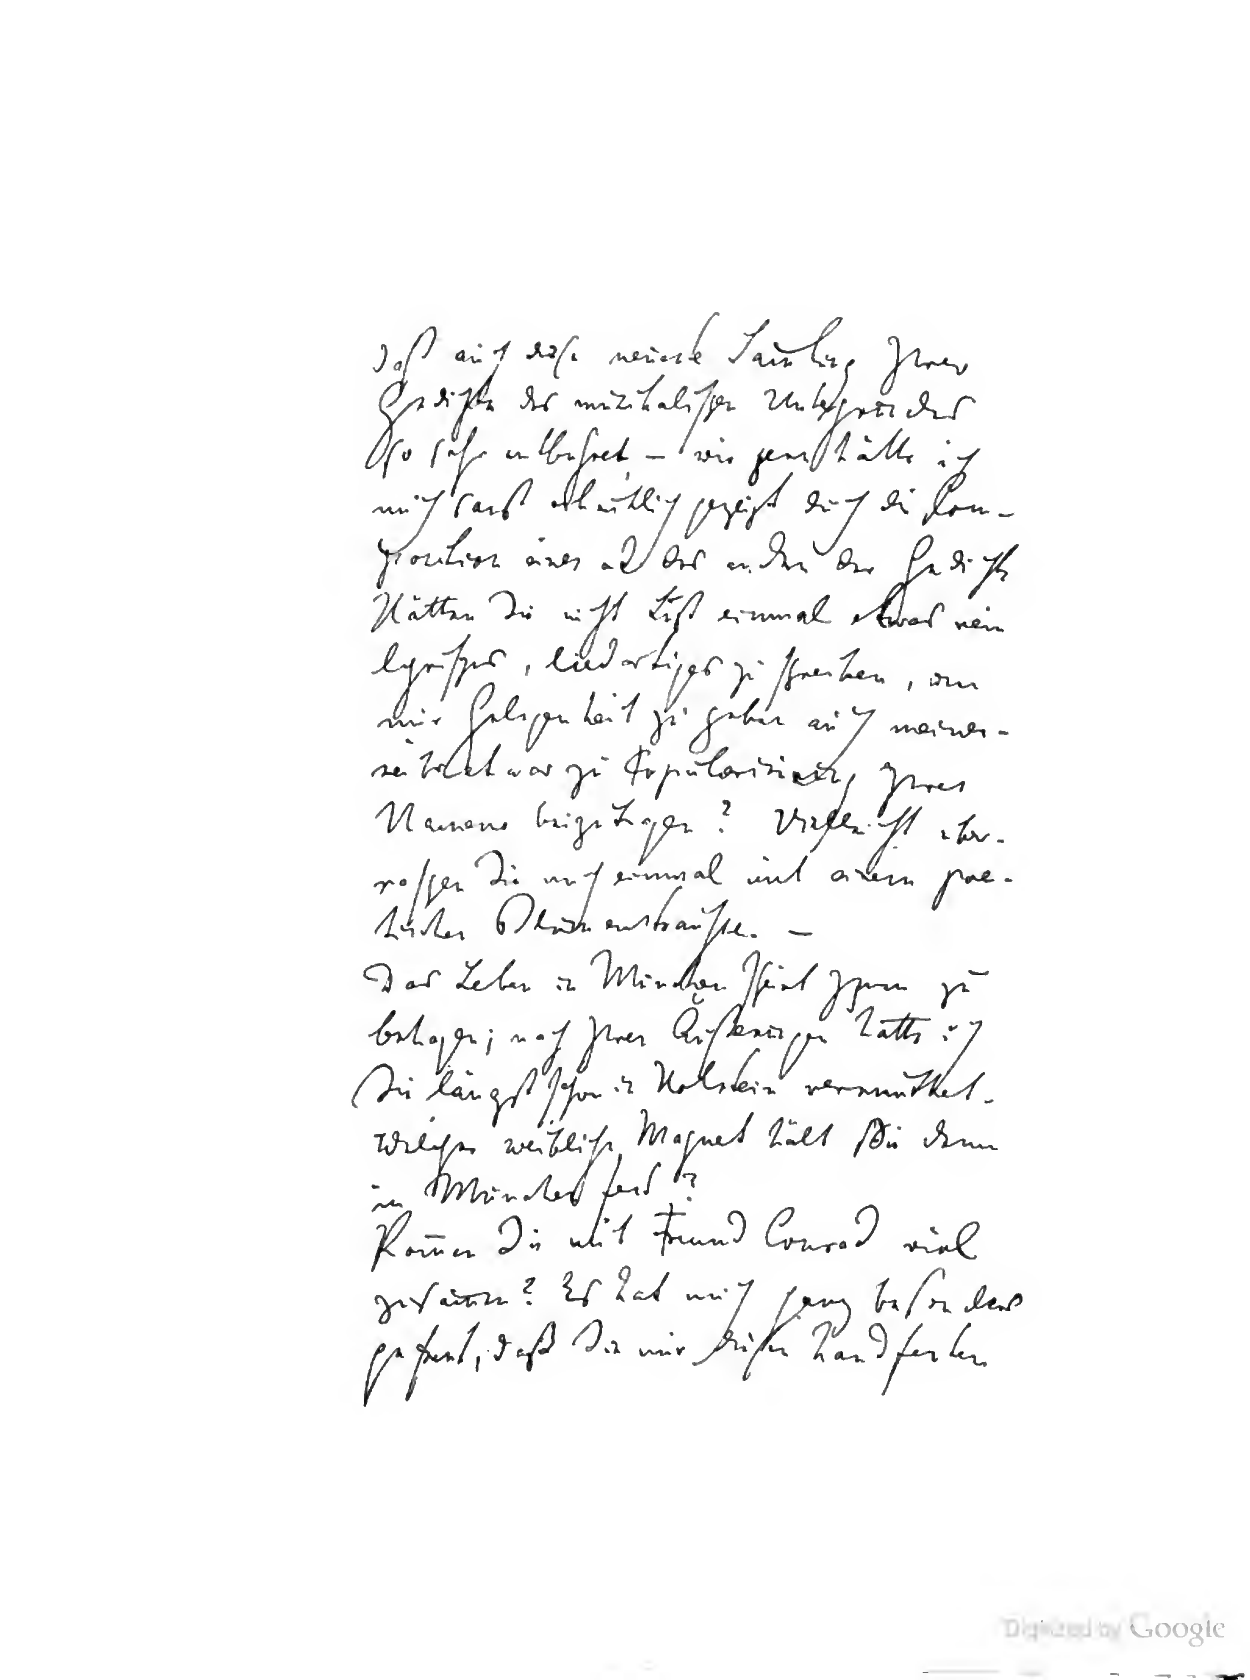 daß auch diese neueste Samlung Ihrer
Gedichte des musikalischen Untergrundes
so sehr entbehret, — wie gern hätte ich
mich sonst erkentlich gezeigt durch die Kom-
position eines od des anden der Gedichte
Hätten Sie nicht Lust einmal etwas rein
lyrisches, liedartiges zu schreiben, um
mir Gelegenheit zu geben auch meiner-
seits etwas zu Popularisirung Ihres
Namens beizutragen? Vielleicht über-
raschen Sie mich einmal mit einem poe-
tischen Blumenstrauße. —
Das Leben in München scheint Ihnen zu
behagen; nach Ihren Äußerungen hätte ich
Sie längst schon in Holstein vermuthet.
Welcher weibliche Magnet hält Sie denn
in München fest?
Komen Sie mit Freund Conrad viel
zusamen? Es hat mich ganz besonders
gefreut, daß Sie mir diesen handfesten
Digitized by Google